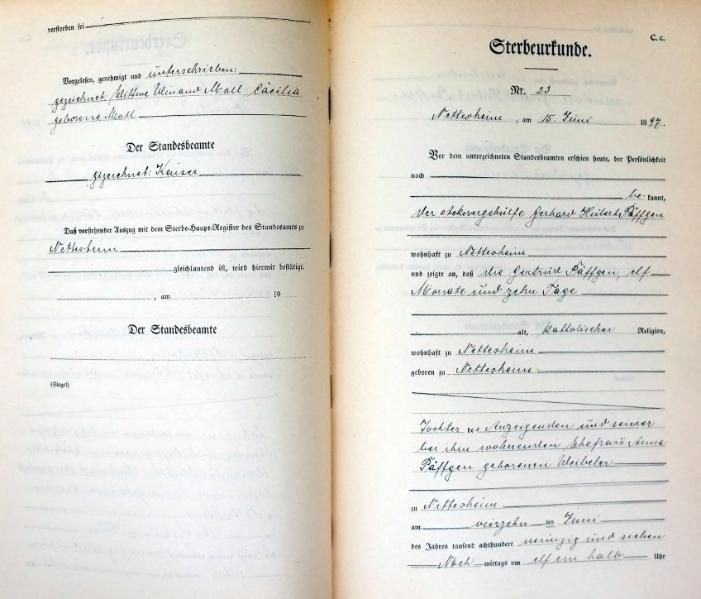 verstorben sei
Vorgelesen, genehmigt und unterschrieben:
gezeichnet: Wittwe Winand Moll, Cäcilia
geborene Moll
Der Standesbeamte
gezeichnet: Kaiser
Das vorstehender Auszug mit dem Sterbe-Haupt-Register des Standesamts zu
Nettersheim
gleichlautend ist, wird hiermit bestätigt.
, am 19
Der Standesbeamte
(Siegel)
C. c.
Sterbeurkunde.
Nr. 23
Nettersheim, am 15. Juni 1897.
Vor dem unterzeichneten Standesbeamten erschien heute, der Persönlichkeit
nach
be kannt,
der Gerhard Hubert Päffgen
wohnhaft zu Nettersheim
und zeigte an, daß die Gertrud Päffgen, elf
Monate und zehn Tage
alt, katholischer Religion,
wohnhaft zu Nettersheim
geboren zu Nettersheim
Tochter des Anzeigenden und seiner
bei ihm wohnenden Ehefrau Anna
Päffgen geborenen
zu Nettersheim
am vierzehn ten Juni
des Jahres tausend achthundert neunzig und sieben
Nach mittags um elf ein halb Uhr